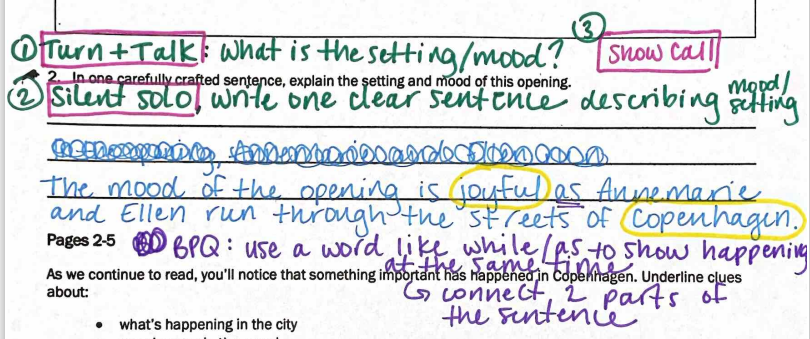 ③
① Turn + Talk: what is the setting/mood? Show Call
2. In one carefully crafted sentence, explain the setting and mood of this opening.
② Silent solo, write one clear sentence describing mood/setting
The mood of the opening is joyful as Annemarie
and Ellen run through the streets of Copenhagen.
Pages 2-5 BPQ: use a word like while/as to show happening
at the same time
As we continue to read, you'll notice that something important has happened in Copenhagen. Underline clues
about:
↳ connect 2 parts of
the sentence
• what's happening in the city